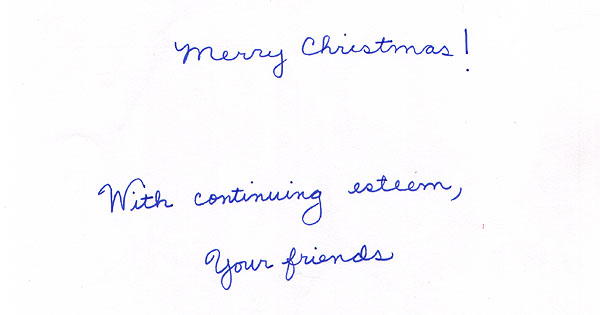 Merry Christmas!
With continuing esteem,
Your friends